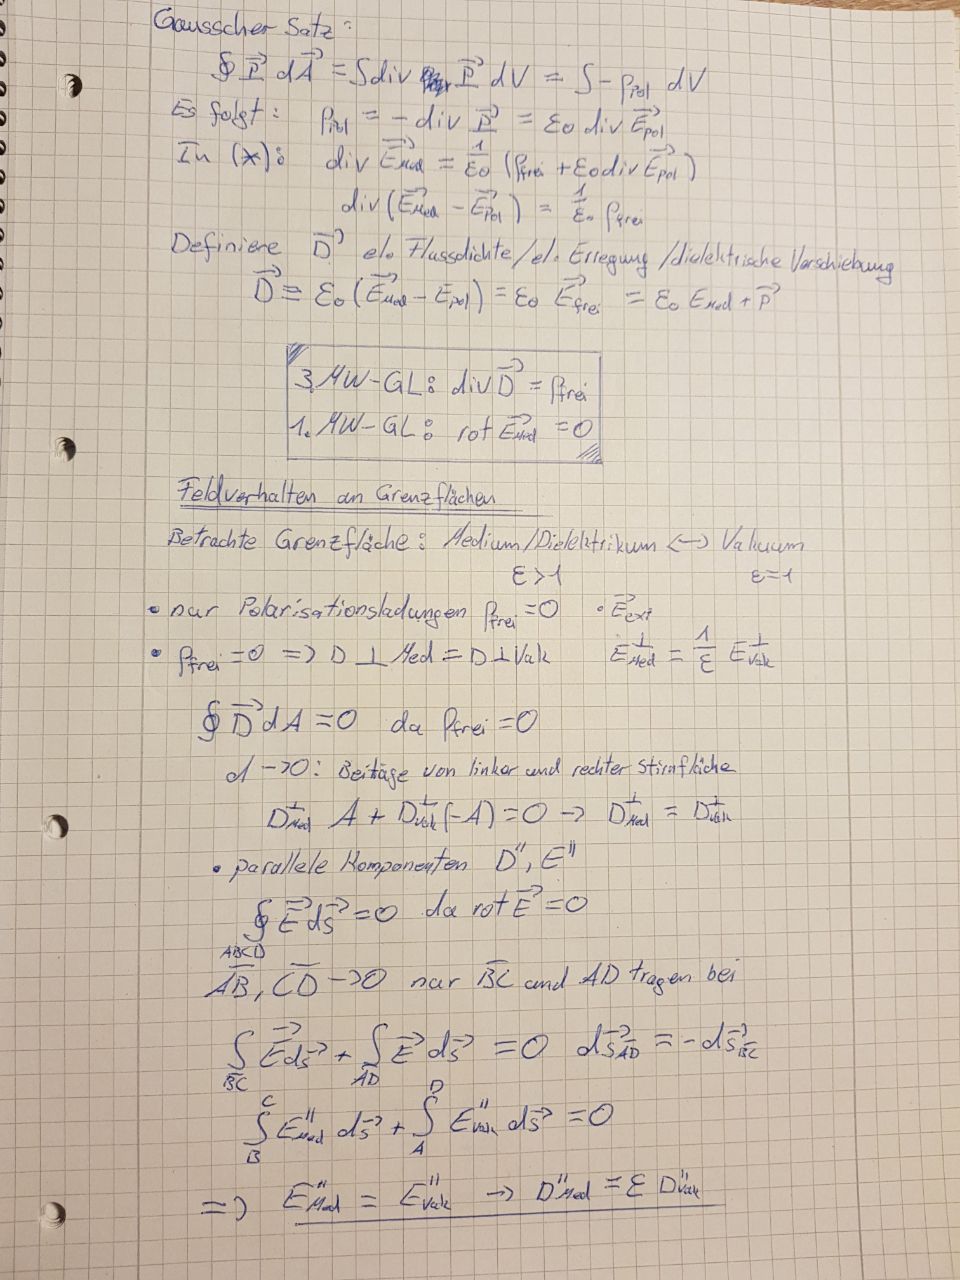 Gausscher Satz:
∮ P⃗ dA⃗ = ∫ div P⃗ dV = ∫ - ρ_Pol dV
Es folgt: ρ_Pol = - div P⃗ = ε₀ div E⃗_Pol
In (*): div E⃗_Med = 1/ε₀ (ρ_frei + ε₀ div E⃗_Pol)
div (E⃗_Med - E⃗_Pol) = 1/ε₀ ρ_frei
Definiere D⃗ el. Flussdichte/el. Erregung/dielektrische Verschiebung
D⃗ = ε₀ (E⃗_Med - E_Pol) = ε₀ E⃗_frei = ε₀ E_Med + P⃗
3. MW-GL: div D⃗ = ρ_frei
1. MW-GL: rot E⃗_Med = 0
Feldverhalten an Grenzflächen
Betrachte Grenzfläche: Medium/Dielektrikum ↔ Vakuum
ε>1 ε=1
• nur Polarisationsladungen ρ_frei = 0 • E⃗_ext
• ρ_frei = 0 => D⊥Med = D⊥Vak E^⊥_Med = 1/ε E^⊥_Vak
∮ D⃗ dA = 0 da ρ_frei = 0
d → 0: Beitäge von linker und rechter Stirnfläche
D^⊥_Med A + D^⊥_Vak (-A) = 0 → D^⊥_Med = D^⊥_Vak
• parallele Komponenten D", E"
∮_ABCD E⃗ ds⃗ = 0 da rot E⃗ = 0
A̅B̅, C̅D̅ → 0 nur B̅C̅ und AD tragen bei
∫_BC E⃗ ds⃗ + ∫_AD E⃗ ds⃗ = 0 ds⃗_AD = - ds⃗_BC
∫_B^C E"_Med ds⃗ + ∫_A^D E"_Vak ds⃗ = 0
=> E"_Med = E"_Vak → D"_Med = ε D"_Vak